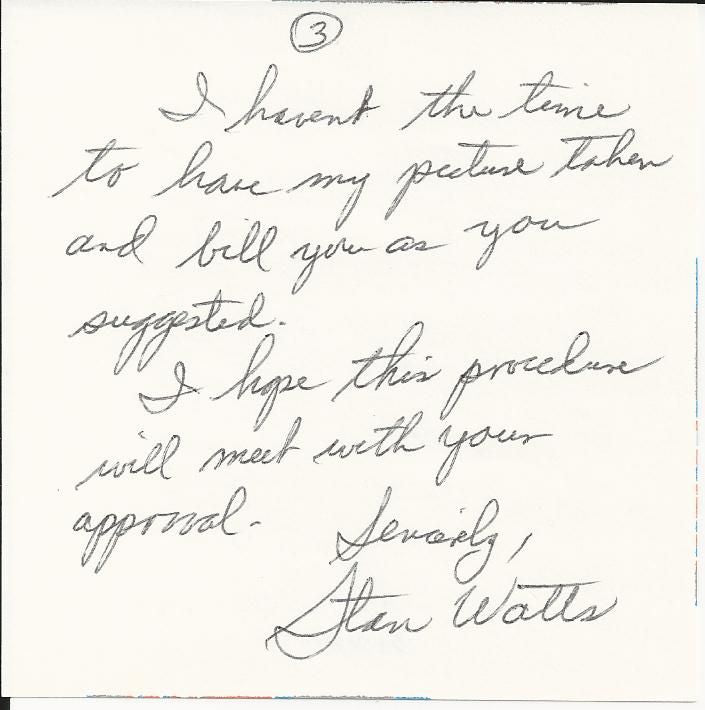 3
I havent the time
to have my picture taken
and bill you as you
suggested.
I hope this procedure
will meet with your
approval.
Sincerely,
Stan Watts